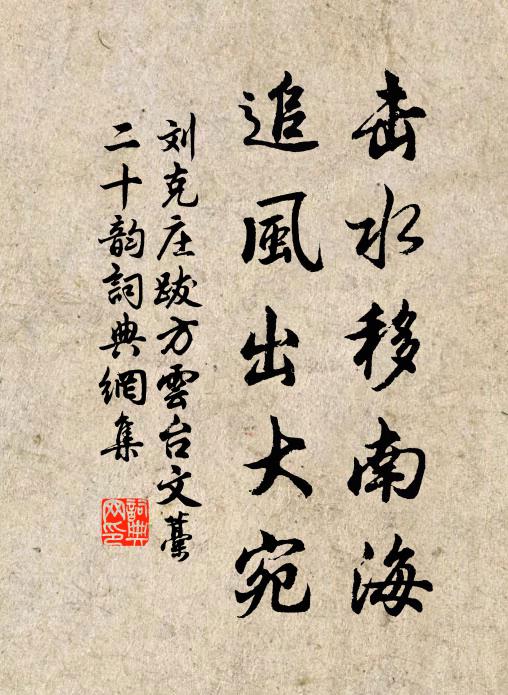 击水移南海
追風出大宛
刘克庄跋方雲台文藁
二十韵詞典網集
詞典网印